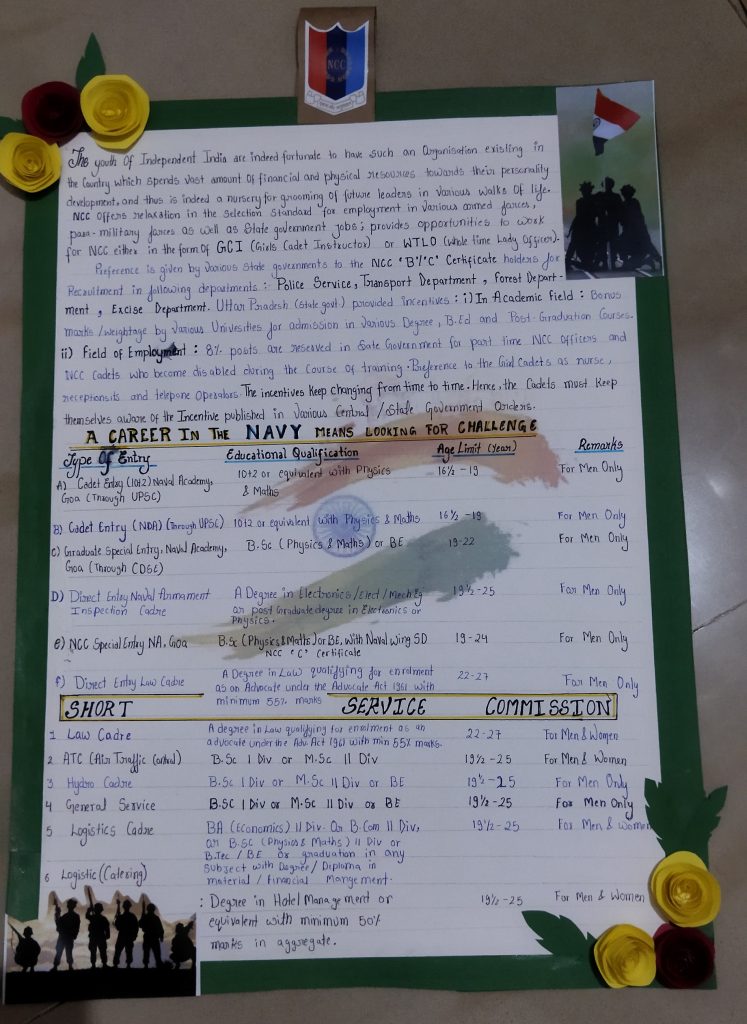 NCC
The youth Of Independent India are indeed fortunate to have such an Organisation existing in
the Country which spends vast amount Of financial and physical resources towards their personality
development, and thus is indeed a nursery for grooming of future leaders in various walks Of life.
NCC Offers relaxation in the Selection Standard for employment in Various armed forces,
para-military forces as well as State government jobs; provides opportunities to work
for NCC either in the form Of GCI (Girls Cadet Instructor) or WTLO (Whole time Lady Officer).
Preference is given by Various State governments to the NCC 'B'/'C' Certificate holders for
Recruitment in following departments : Police Service, Transport Department, Forest Depart-
ment, Excise Department. Uttar Pradesh (State govt.) provided incentives : i) In Academic Field : Bonus
marks/weightage by Various Univesities for admission in Various Degree, B.Ed and Post-Graduation Courses.
ii) Field of Employment : 8% posts are reserved in State Government for part time NCC Officers and
NCC Cadets who become disabled during the Course of training. Preference to the Girl Cadets as nurse,
receptionists and telepone Operators. The incentives keep changing from time to time. Hence, the Cadets must keep
themselves aware Of the Incentive published in Various Central / State Government Orders.
A CAREER IN THE NAVY MEANS LOOKING FOR CHALLENGE
Type Of Entry Educational Qualification Age Limit (Year) Remarks
A) Cadet Entry (10+2) Naval Academy, 10+2 or equivalent with Physics 16½ -19 For Men Only
Goa (Through UPSC) & Maths
B) Cadet Entry (NDA) (Through UPSC) 10+2 or equivalent with Physics & Maths 16½ -19 For Men Only
C) Graduate Special Entry, Naval Academy, B.Sc (Physics & Maths) or BE 19-22 For Men Only
Goa (Through CDSE)
D) Direct Entry Naval Armament A Degree in Electronics/Elect/Mech Eg 19½-25 For Men Only
Inspection Cadre or post Graduate degree in Electronics or
Physics.
e) NCC Special Entry NA, Goa B.Sc (Physics & Maths) or BE, With Naval Wing SD 19-24 For Men Only
NCC 'C' Certificate
f) Direct Entry Law Cadre A Degree in Law qualifying for enrolment 22-27 For Men Only
as an Advocate under the Advocate Act 1961 with
minimum 55% marks
SHORT SERVICE COMMISSION
1 Law Cadre A degree in Law qualifying for enrolment as an 22-27 For Men & Women
advocate under the Adv. Act 1961 with min 55% marks.
2 ATC (Air Traffic Control) B.Sc I Div or M.Sc II Div 19½-25 For Men & Women
3 Hydro Cadre B.Sc I Div or M.Sc II Div or BE 19½-25 For Men Only
4 General Service B.SC I Div or M.SC II Div or BE 19½-25 For Men Only
5 Logistics Cadre BA (Economics) II Div. Or B.Com II Div, 19½-25 For Men & Women
or B.Sc (Physics & Maths) II Div or
B.Tec / BE or graduation in any
Subject with Degree/Diploma in
6 Logistic (Catering) material / Financial Mangement.
: Degree in Hotel Management or 19½-25 For Men & Women
equivalent with minimum 50%
marks in aggregate.